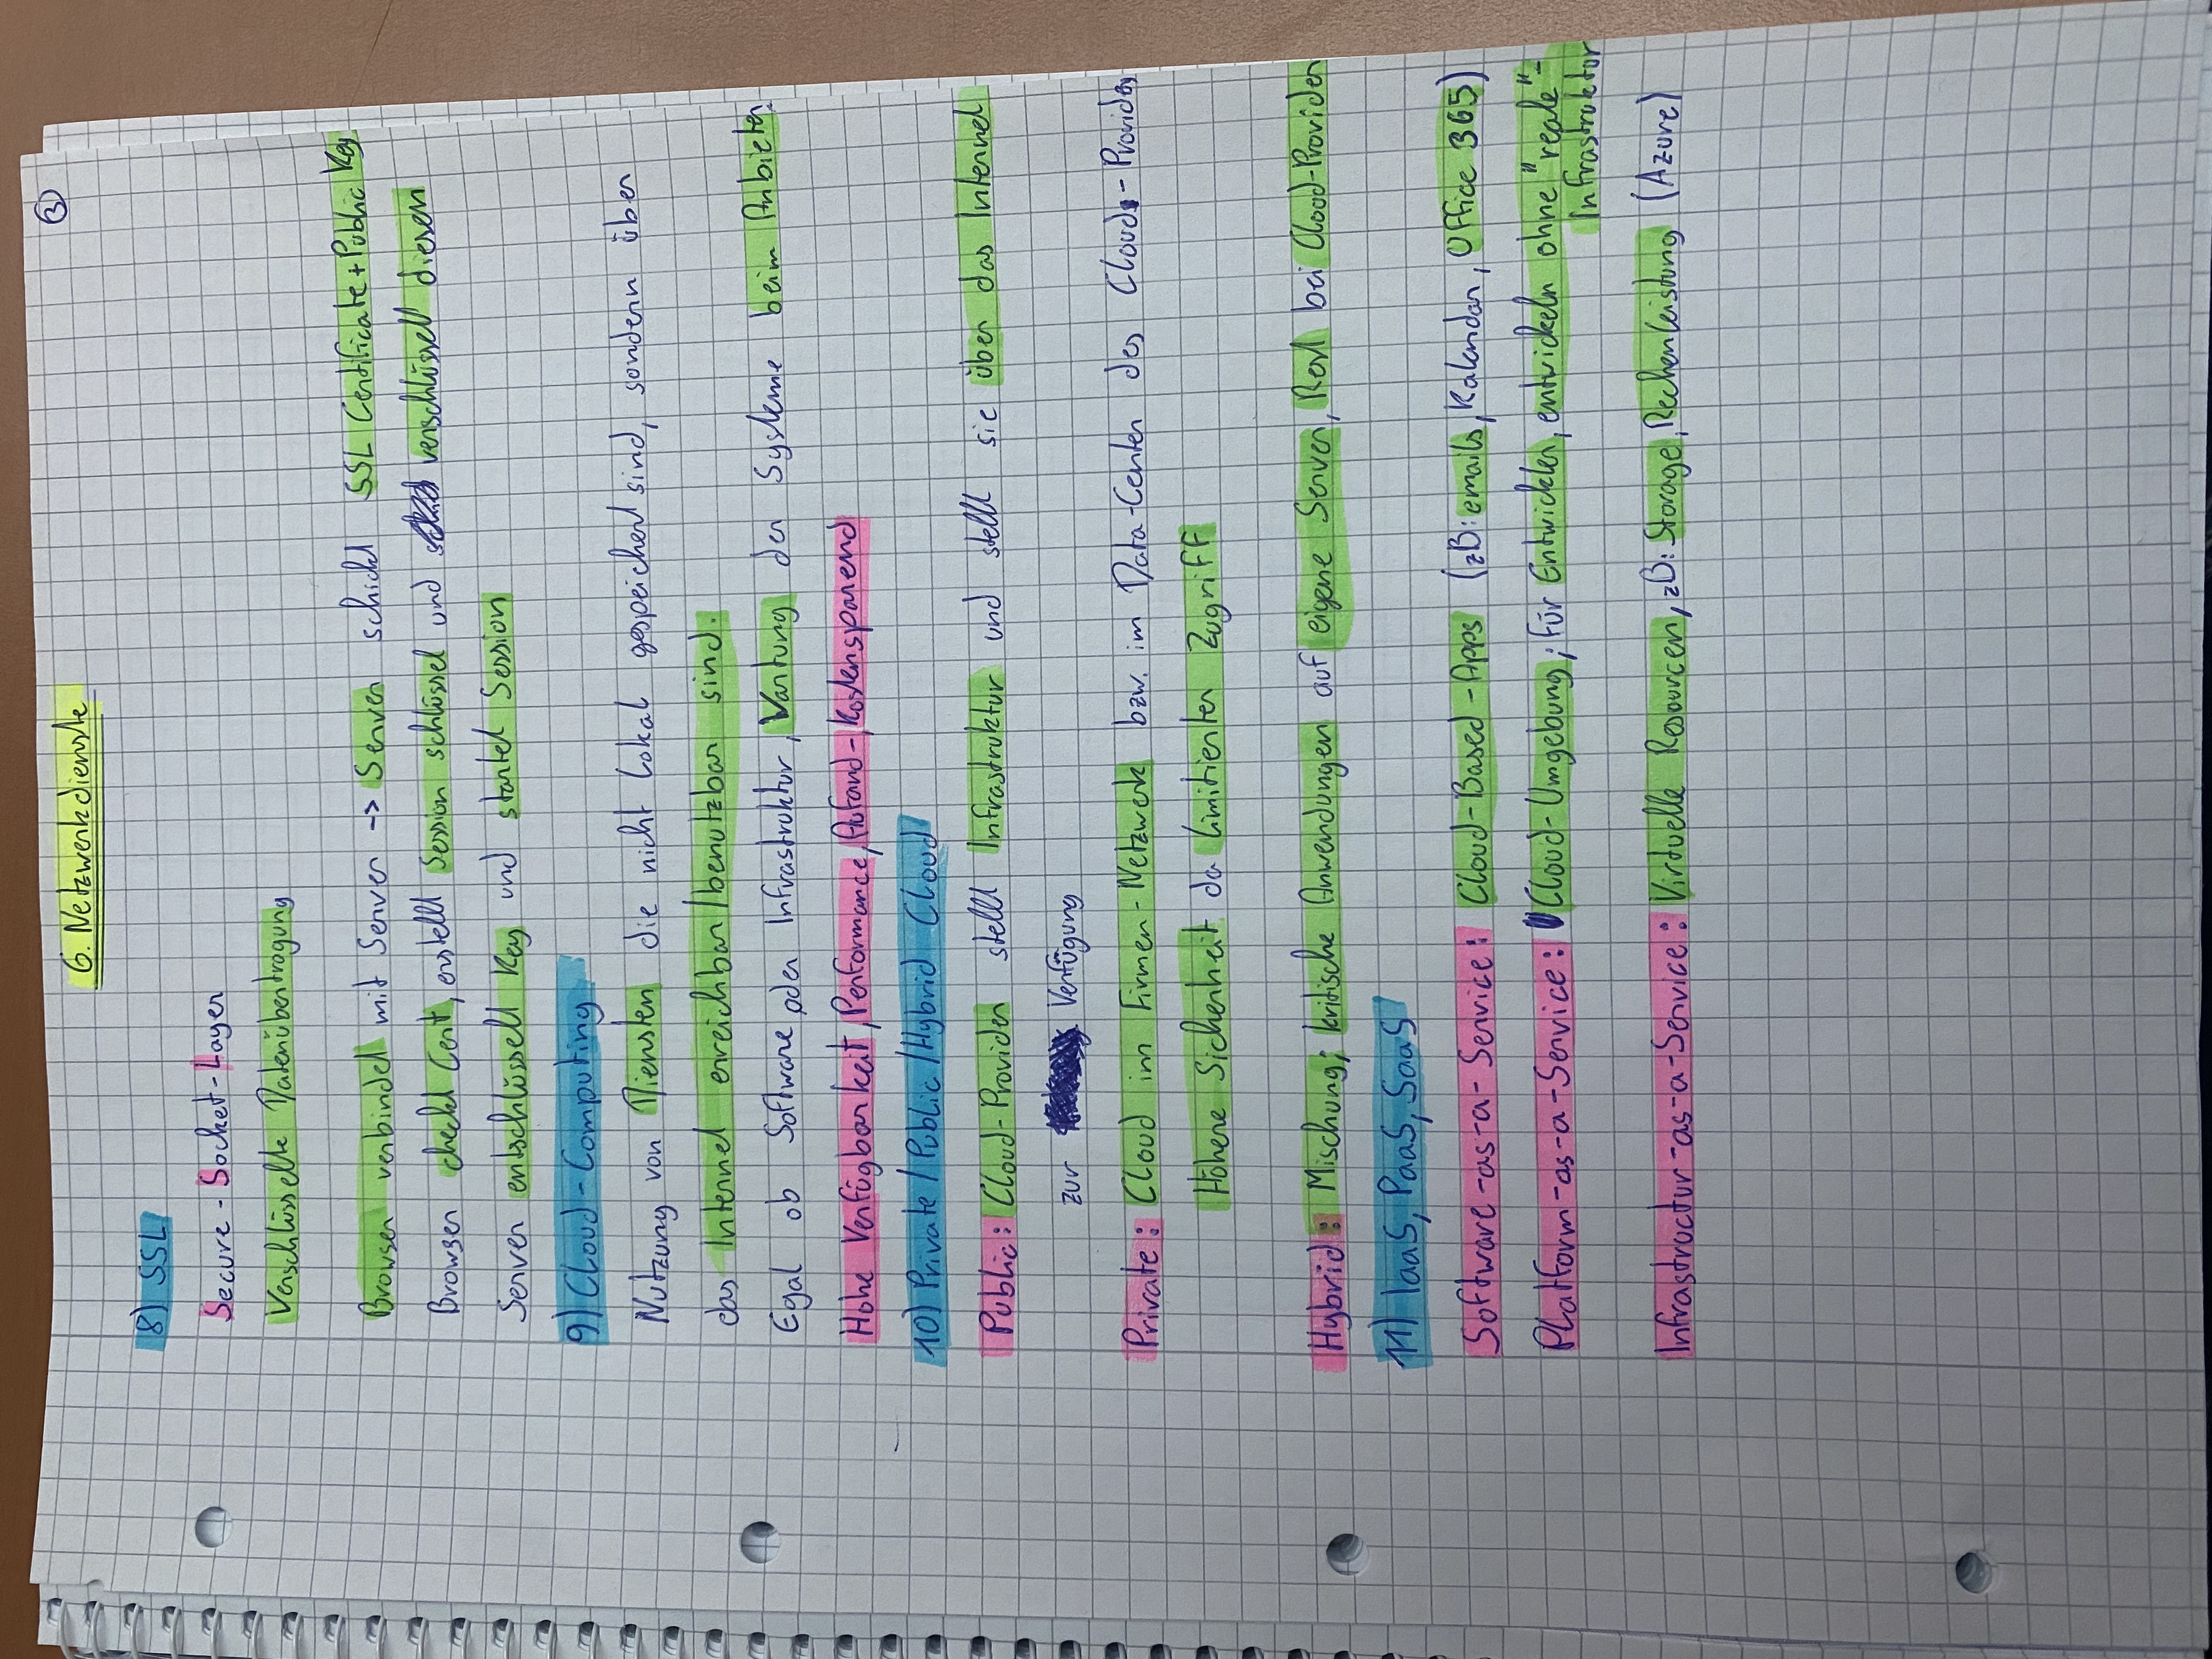 ③
6. Netzwerkdienste
8) SSL
Secure-Socket-Layer
Verschlüsselte Datenübertragung
Browser verbindet mit Server -> Server schickt SSL Certificate + Public Key
Browser checkt Cert, erstellt Session schlüssel und verschlüsselt diesen
Server entschlüsselt Key und startet Session
9) Cloud-Computing
Nutzung von Diensten die nicht Lokal gespeichert sind, sondern über
das Internet erreichbar/benutzbar sind.
Egal ob Software oder Infrastruktur, Wartung der Systeme beim Anbieter.
Hohe Verfügbarkeit, Performance, Aufand-, Kostensparend
10) Private/Public/Hybrid Cloud
Public: Cloud-Provider stellt Infrastruktur und stellt sie über das Internet
zur Verfügung
Private: Cloud im Firmen-Netzwerk bzw. im Data-Center des Cloud-Providers
Höhere Sicherheit da limitierter Zugriff
Hybrid: Mischung; kritische Anwendungen auf eigene Server, Rest bei Cloud-Provider
11) IaaS, PaaS, SaaS
Software-as-a-Service: Cloud-Based-Apps (zB: emails, Kalendar, Office 365)
Platform-as-a-Service: Cloud-Umgebung; für Entwickler, entwickeln ohne "reale"-
Infrastruktur
Infrastructur-as-a-Service: Virtuelle Resourcen, zB: Storage, Rechenleistung (Azure)